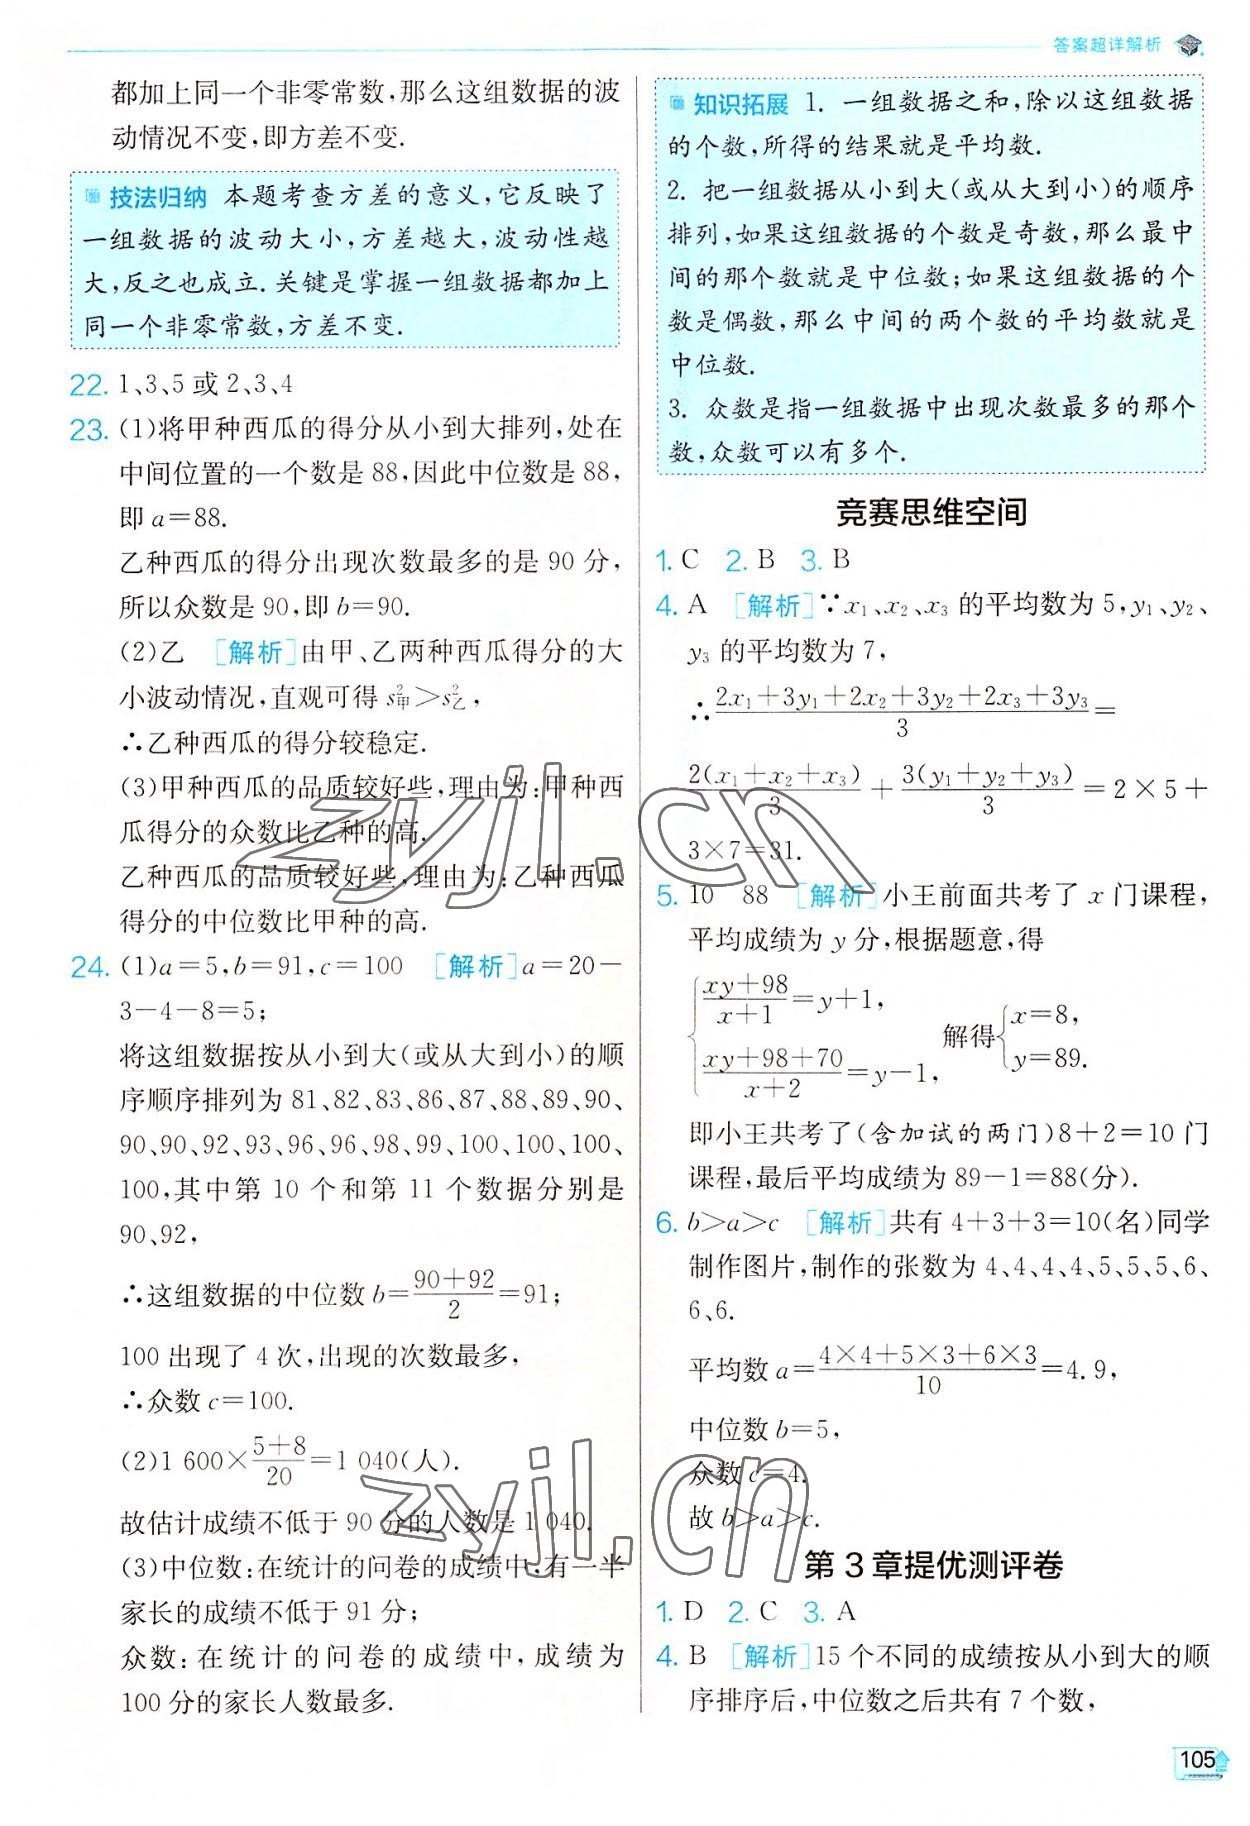 答案超详解析
都加上同一个非零常数,那么这组数据的波
动情况不变,即方差不变.
技法归纳 本题考查方差的意义,它反映了
一组数据的波动大小,方差越大,波动性越
大,反之也成立.关键是掌握一组数据都加上
同一个非零常数,方差不变.
22. 1、3、5 或 2、3、4
23. (1)将甲种西瓜的得分从小到大排列,处在
中间位置的一个数是 88,因此中位数是 88,
即 a=88.
乙种西瓜的得分出现次数最多的是 90 分,
所以众数是 90,即 b=90.
(2)乙 [解析]由甲、乙两种西瓜得分的大
小波动情况,直观可得 s²甲>s²乙,
∴乙种西瓜的得分较稳定.
(3)甲种西瓜的品质较好些,理由为:甲种西
瓜得分的众数比乙种的高.
乙种西瓜的品质较好些,理由为:乙种西瓜
得分的中位数比甲种的高.
24. (1)a=5,b=91,c=100 [解析]a=20-
3-4-8=5;
将这组数据按从小到大(或从大到小)的顺
序顺序排列为 81、82、83、86、87、88、89、90、
90、90、92、93、96、96、98、99、100、100、100、
100,其中第 10 个和第 11 个数据分别是
90、92,
∴这组数据的中位数 b=(90+92)/2=91;
100 出现了 4 次,出现的次数最多,
∴众数 c=100.
(2)1 600×(5+8)/20=1 040(人).
故估计成绩不低于 90 分的人数是 1 040.
(3)中位数:在统计的问卷的成绩中,有一半
家长的成绩不低于 91 分;
众数:在统计的问卷的成绩中,成绩为
100 分的家长人数最多.
知识拓展 1. 一组数据之和,除以这组数据
的个数,所得的结果就是平均数.
2. 把一组数据从小到大(或从大到小)的顺序
排列,如果这组数据的个数是奇数,那么最中
间的那个数就是中位数;如果这组数据的个
数是偶数,那么中间的两个数的平均数就是
中位数.
3. 众数是指一组数据中出现次数最多的那个
数,众数可以有多个.
竞赛思维空间
1. C 2. B 3. B
4. A [解析]∵x₁、x₂、x₃ 的平均数为 5,y₁、y₂、
y₃ 的平均数为 7,
∴(2x₁+3y₁+2x₂+3y₂+2x₃+3y₃)/3=
2(x₁+x₂+x₃)/3+3(y₁+y₂+y₃)/3=2×5+
3×7=31.
5. 10 88 [解析]小王前面共考了 x 门课程,
平均成绩为 y 分,根据题意,得
{(xy+98)/(x+1)=y+1,
(xy+98+70)/(x+2)=y-1, 解得{x=8,
y=89.
即小王共考了(含加试的两门)8+2=10 门
课程,最后平均成绩为 89-1=88(分).
6. b>a>c [解析]共有 4+3+3=10(名)同学
制作图片,制作的张数为 4、4、4、4、5、5、5、6、
6、6.
平均数 a=(4×4+5×3+6×3)/10=4.9,
中位数 b=5,
众数 c=4.
故 b>a>c.
第 3 章提优测评卷
1. D 2. C 3. A
4. B [解析]15 个不同的成绩按从小到大的顺
序排序后,中位数之后共有 7 个数,
105
zyjl.cn
zyjl.cn